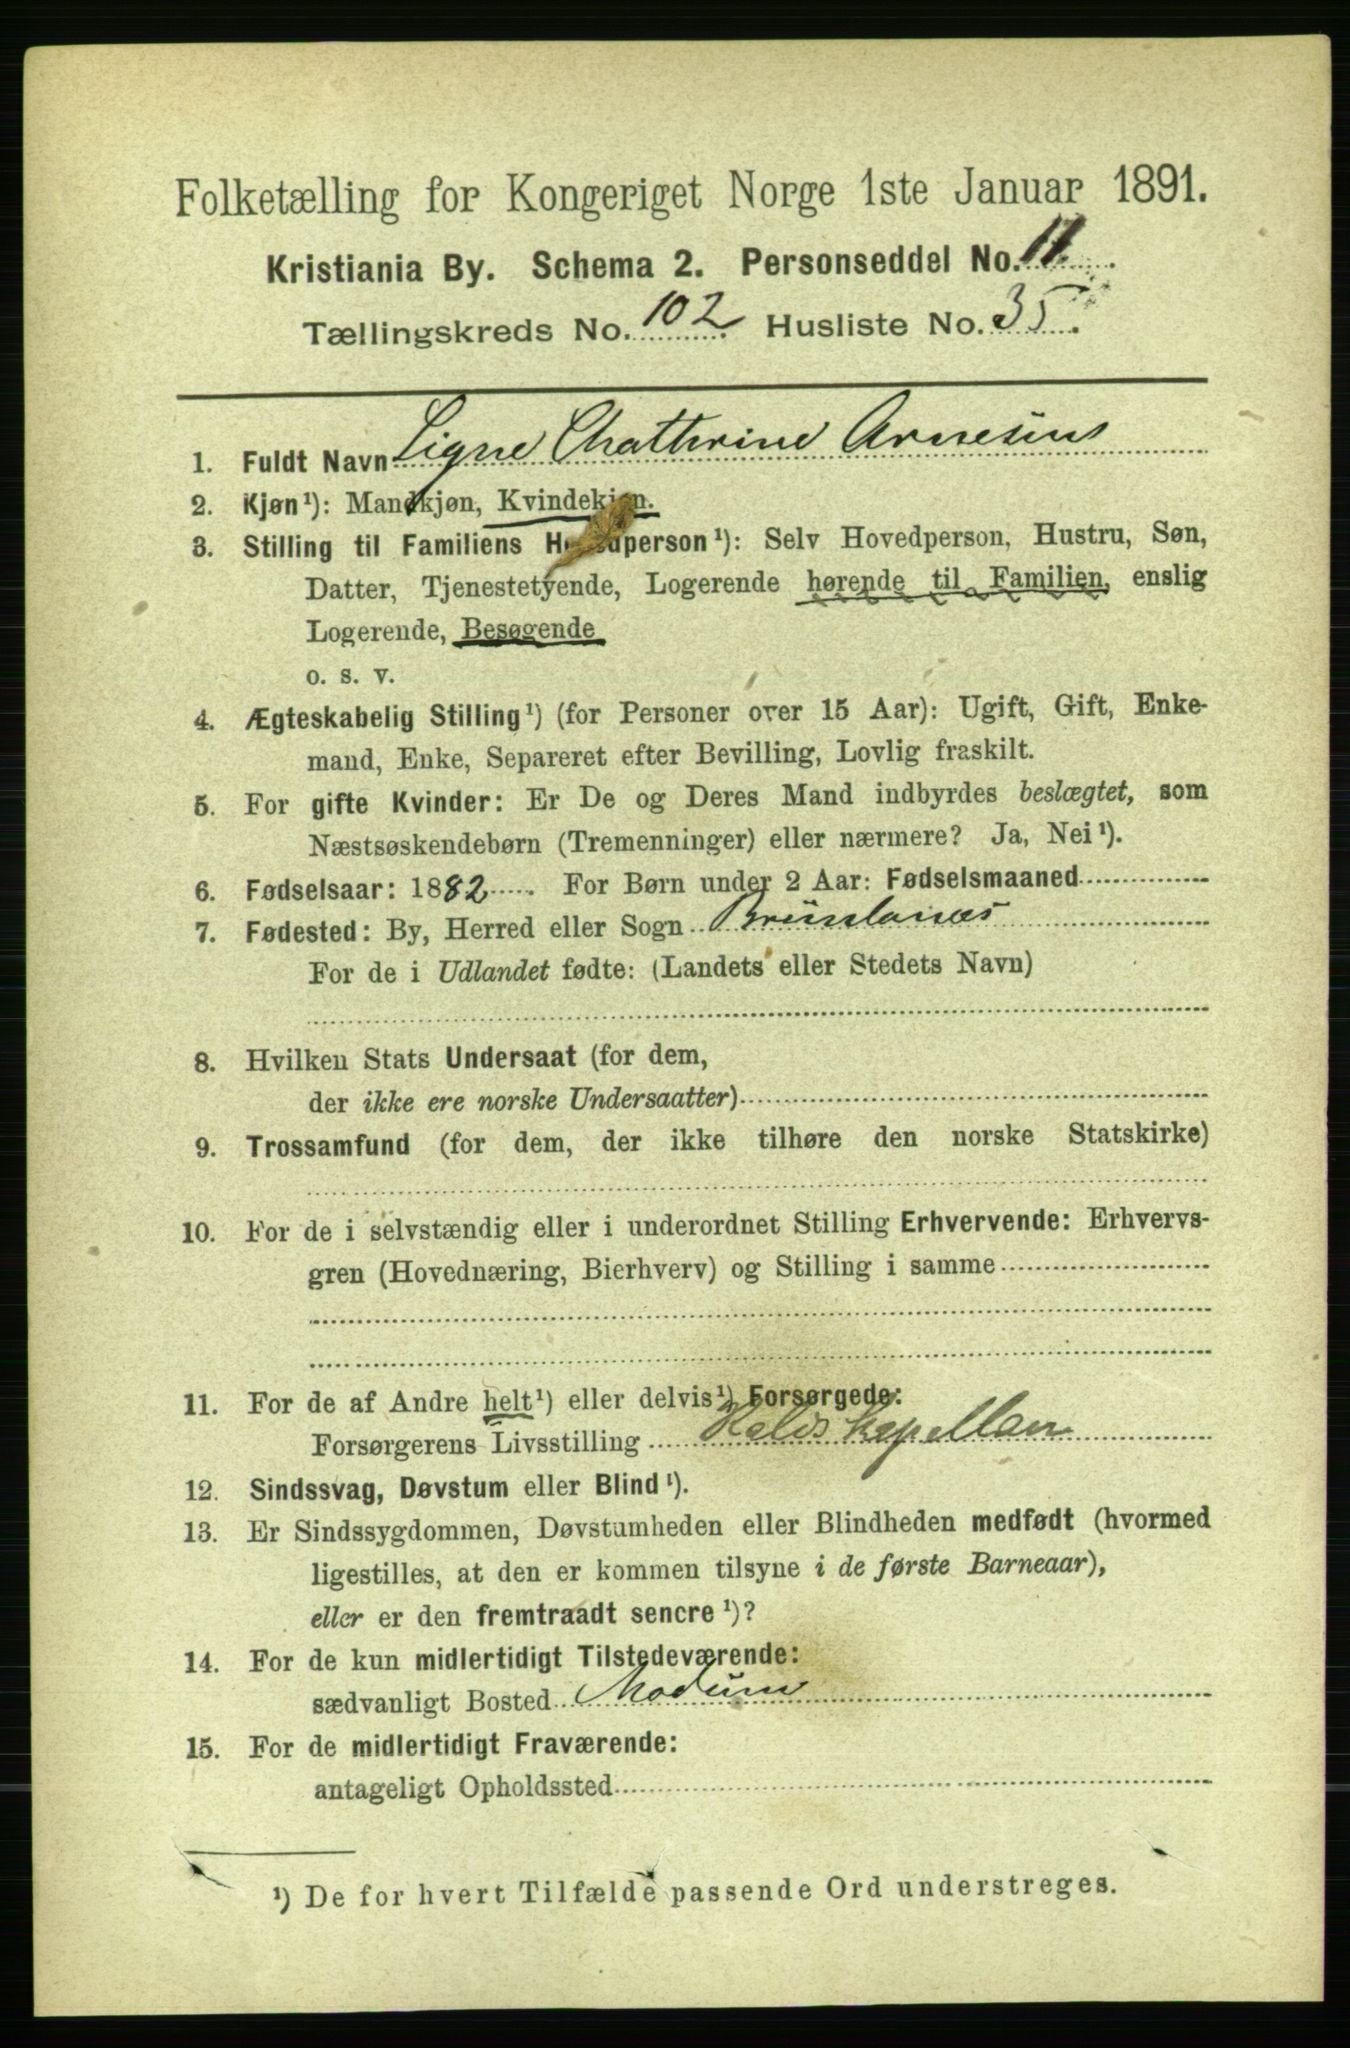 Folketælling for Kongeriget Norge 1ste Januar 1891.
Kristiania By. Schema 2. Personseddel No. 11.
Tællingskreds No. 102. Husliste No. 35.
1. Fuldt Navn Signe Chathrine Arnesens
2. Kjøn¹): Mandkjøn, Kvindekjøn.
3. Stilling til Familiens Hovedperson¹): Selv Hovedperson, Hustru, Søn,
Datter, Tjenestetyende, Logerende hørende til Familien, enslig
Logerende, Besøgende
o. s. v.
4. Ægteskabelig Stilling¹) (for Personer over 15 Aar): Ugift, Gift, Enke-
mand, Enke, Separeret efter Bevilling, Lovlig fraskilt.
5. For gifte Kvinder: Er De og Deres Mand indbyrdes beslægtet, som
Næstsøskendebørn (Tremenninger) eller nærmere? Ja, Nei¹).
6. Fødselsaar: 1882. For Børn under 2 Aar: Fødselsmaaned
7. Fødested: By, Herred eller Sogn Brunlanæs
For de i Udlandet fødte: (Landets eller Stedets Navn)
8. Hvilken Stats Undersaat (for dem,
der ikke ere norske Undersaatter)
9. Trossamfund (for dem, der ikke tilhøre den norske Statskirke)
10. For de i selvstændig eller i underordnet Stilling Erhvervende: Erhvervs-
gren (Hovednæring, Bierhverv) og Stilling i samme
11. For de af Andre helt¹) eller delvis¹) Forsørgede:
Forsørgerens Livsstilling kapellan
12. Sindssvag, Døvstum eller Blind¹).
13. Er Sindssygdommen, Døvstumheden eller Blindheden medfødt (hvormed
ligestilles, at den er kommen tilsyne i de første Barneaar),
eller er den fremtraadt senere¹)?
14. For de kun midlertidigt Tilstedeværende:
sædvanligt Bosted Modum
15. For de midlertidigt Fraværende:
antageligt Opholdssted
¹) De for hvert Tilfælde passende Ord understreges.